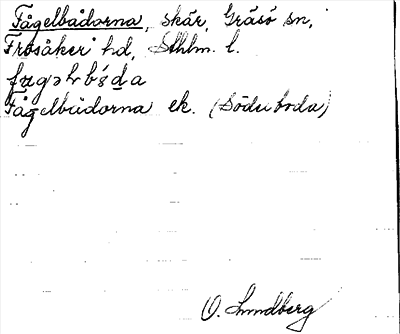 Fågelbådorna, skär, Gräsö sn,
Frösåker hd, Sthlm. l.
Fågelbådorna ek. (Söderboda)
O. Lundberg